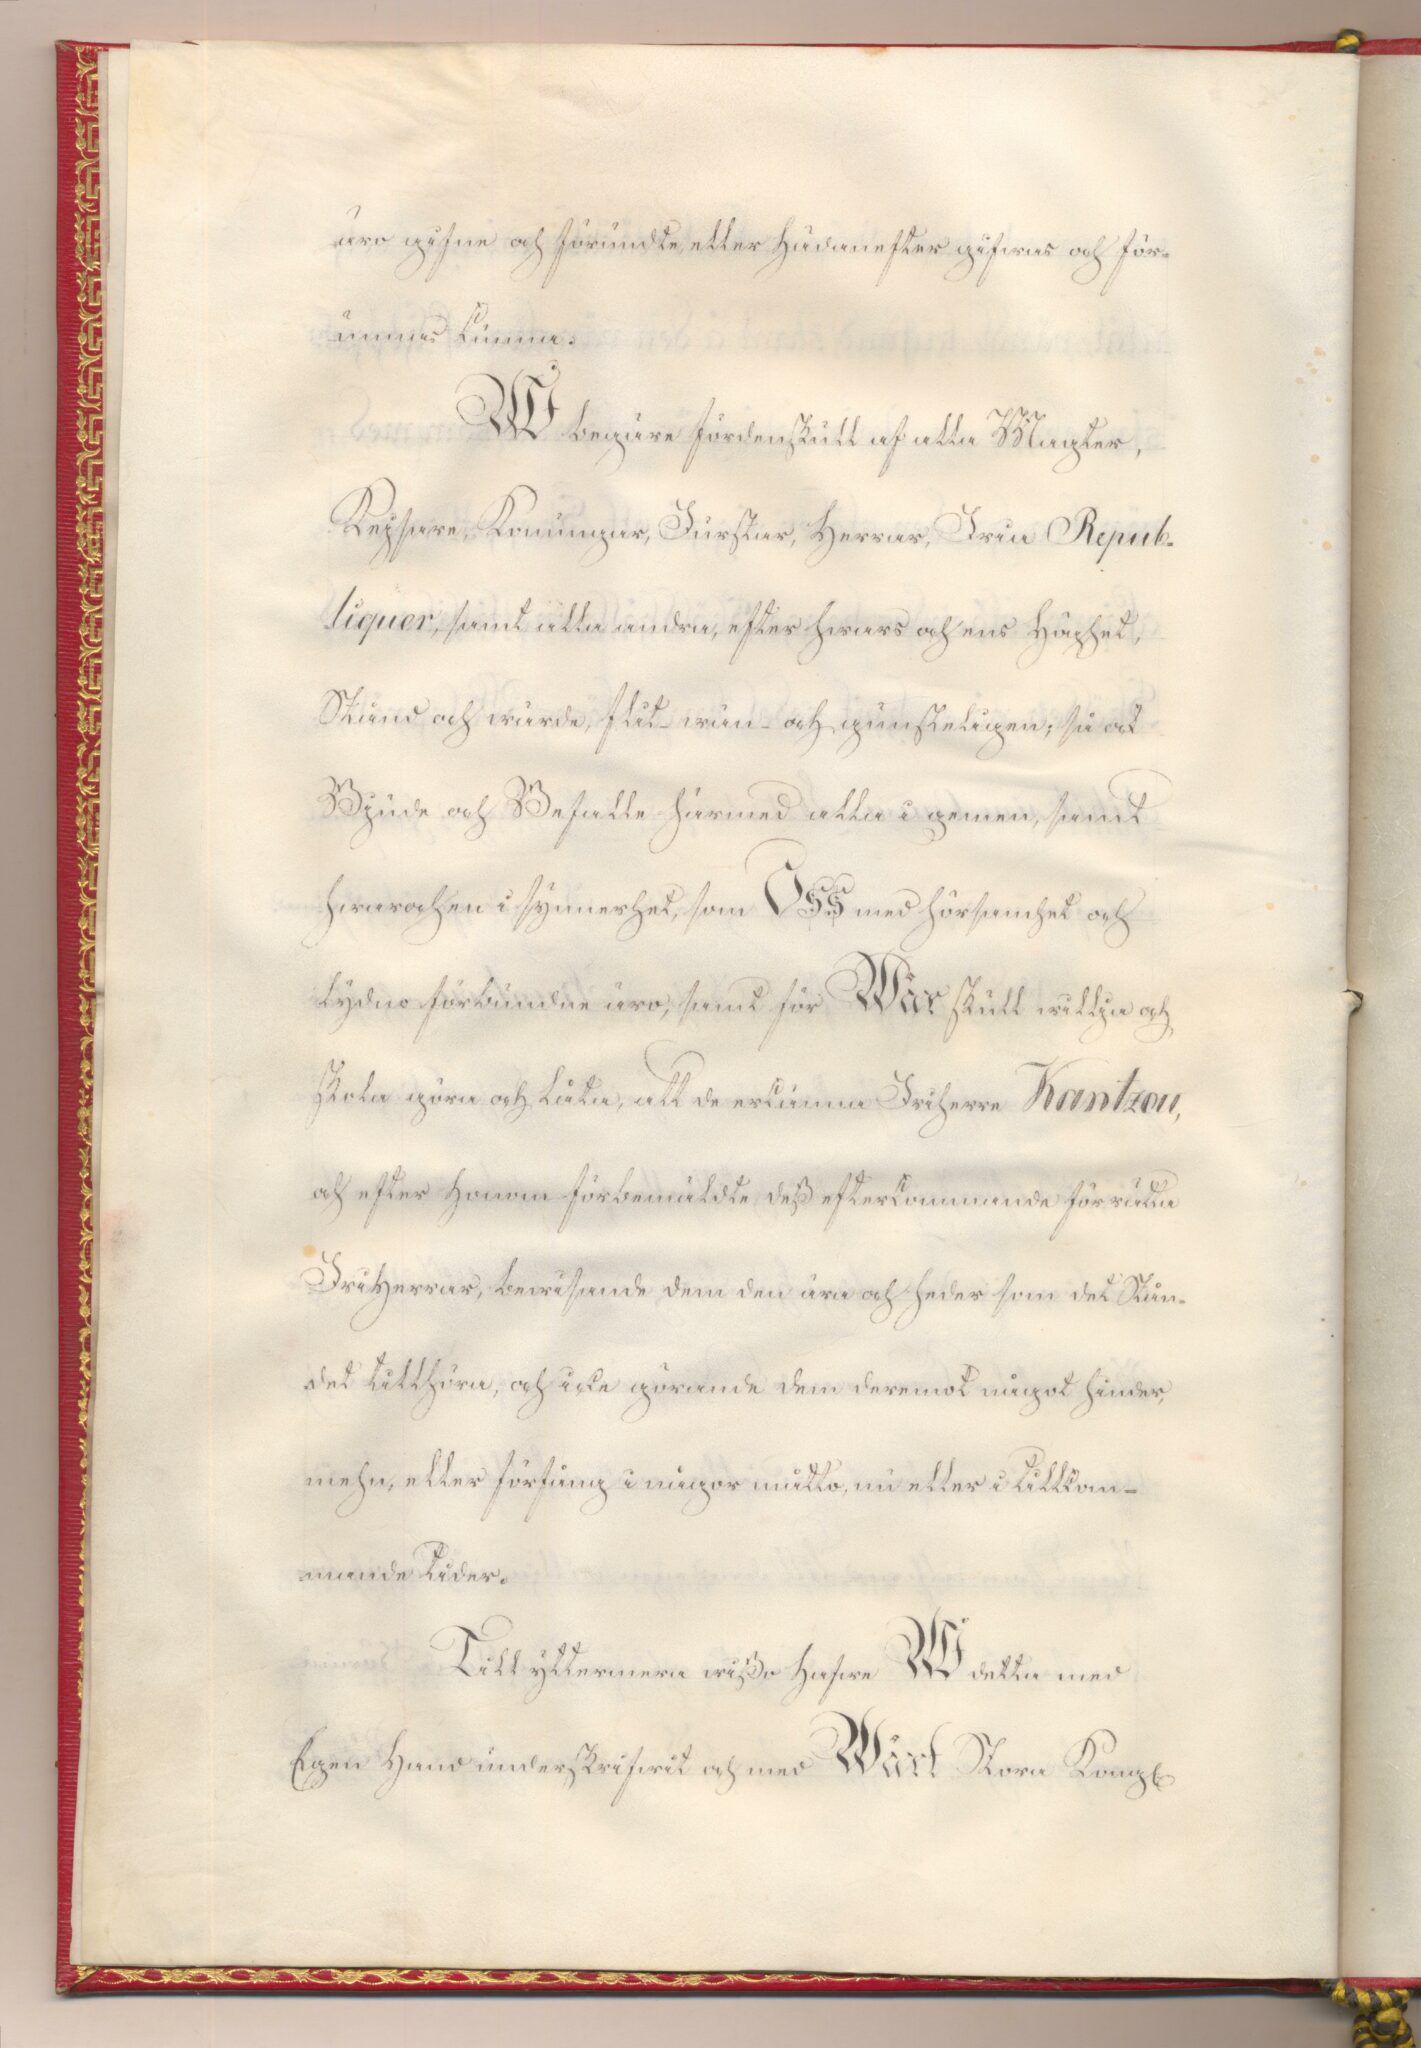 äro gifne och förundte, eller hädanefter gifwas och för-
unnas kunna.
Wi begäre fördenskull af alla Magter,
Kejsare, Konungar, Furstar, Herrar, Fria Repub-
liquer, samt alla andra, efter hwars och ens Höghet,
Stånd och wärde, flit- wän- och gunsteligen; så ock
Bjude och Befalle härmed alla i gemen, samt
hwarochen i synnerhet, som Oss med hörsamhet och
lydno förbundne äro, samt för Wår skull willja och
skola göra och låta, att de erkänna Friherre Kantzou,
och efter Honom förbemäldte deß efterkommande för rätta
FriHerrar, bewisande dem den ära och heder som det Stån-
det tillhöra, och icke görande dem deremot något hinder,
mehn, eller förfång i någor måtto, nu eller i tillkom-
mande tider.
Till yttermera wißo hafwe Wi detta med
Egen Hand underskrifwit och med Wårt Stora Kongl.